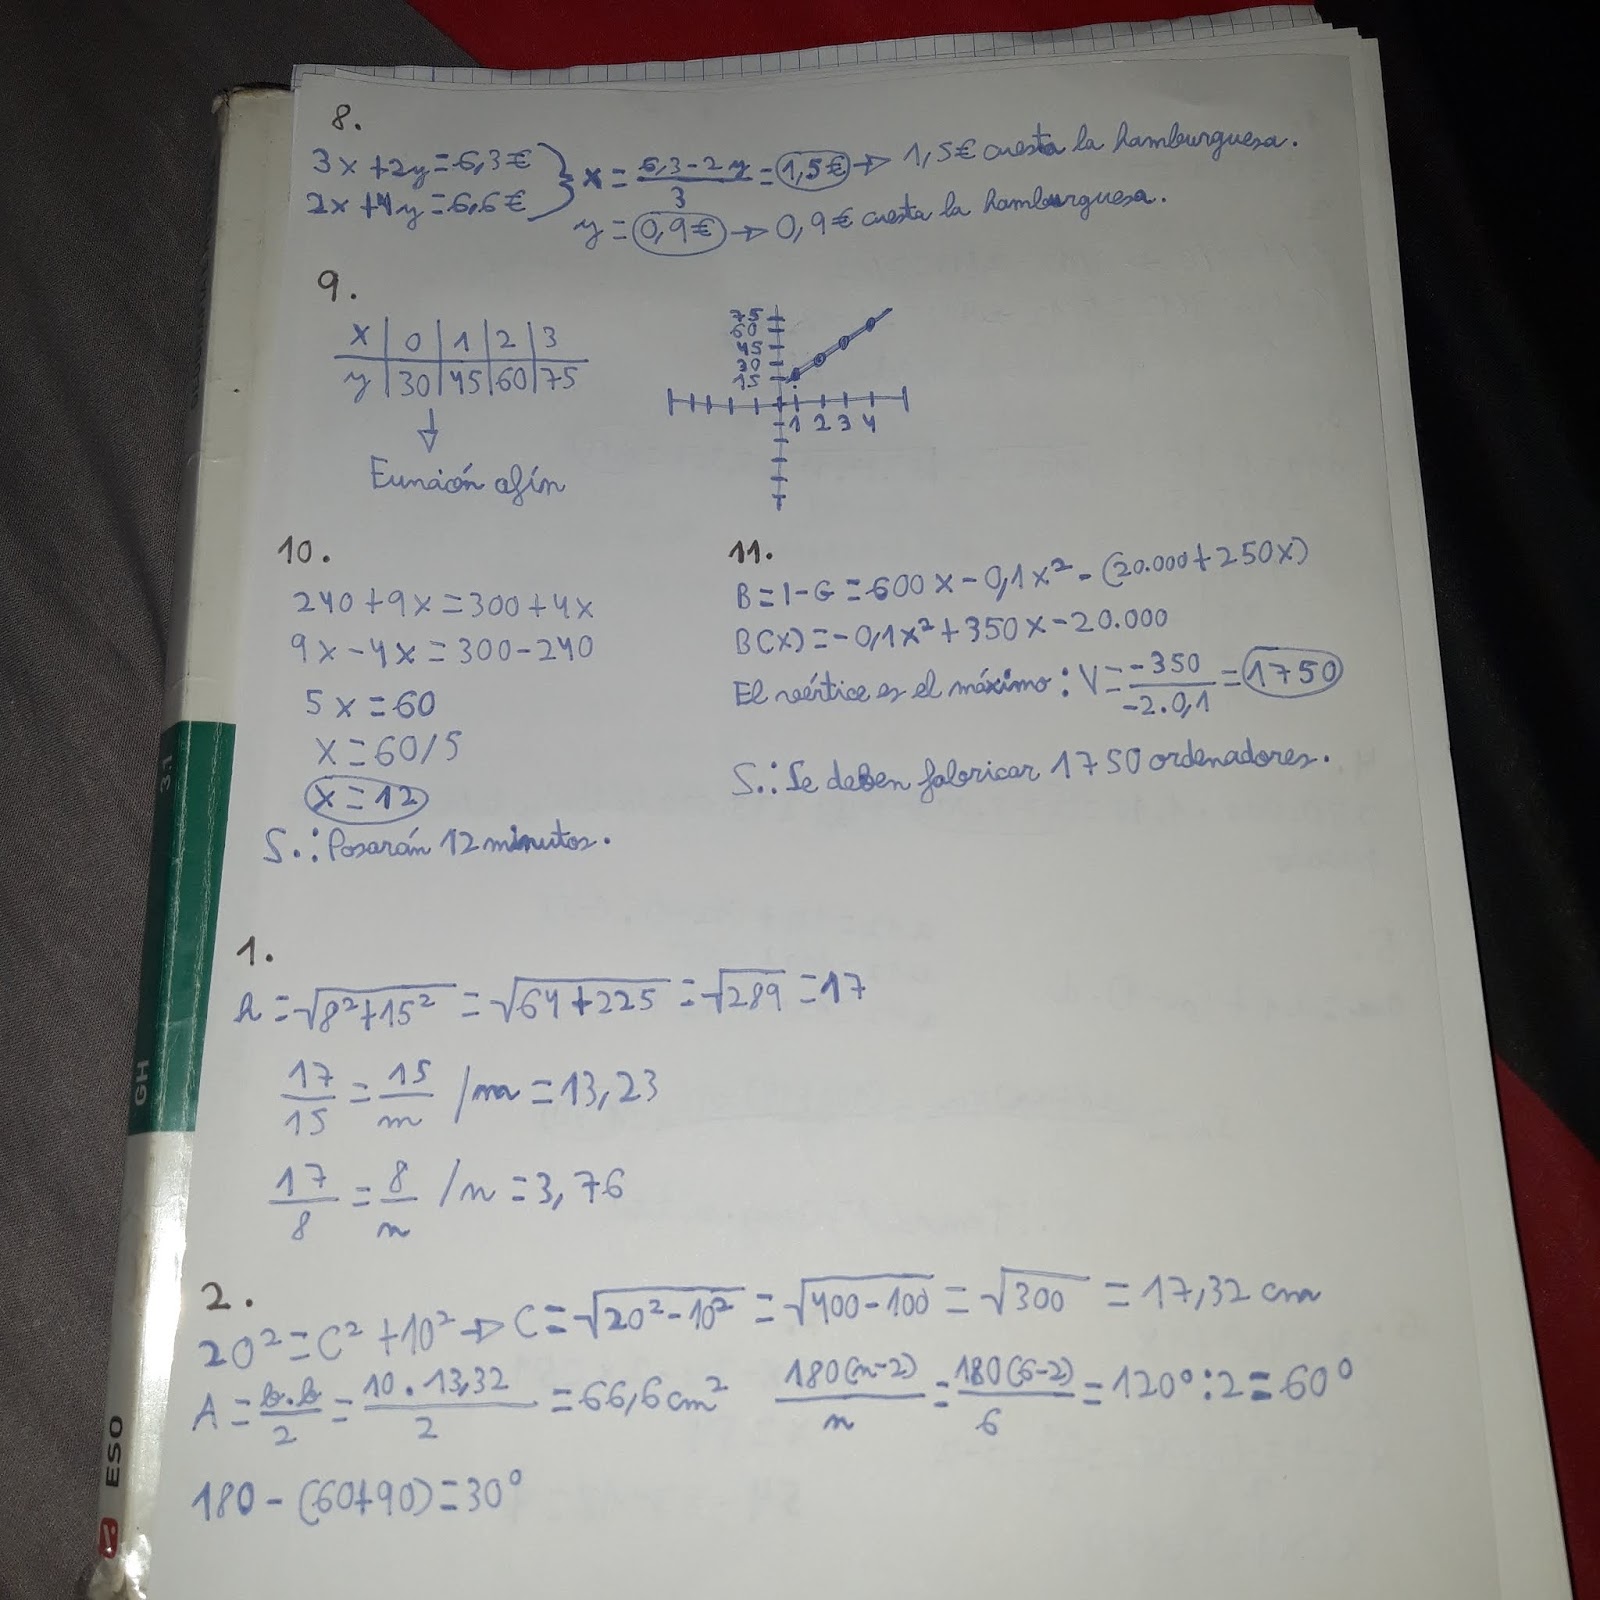 8.
3x+2y=6,3€
2x+4y=6,6€
x = (6,3-2y)/3 = 1,5€ → 1,5€ cuesta la hamburguesa.
y = 0,9€ → 0,9€ cuesta la hamburguesa.
9.
x | 0 | 1 | 2 | 3
y | 30 | 45 | 60 | 75
↓
Función afín
75
60
45
30
15
1 2 3 4
10.
240+9x=300+4x
9x-4x=300-240
5x=60
x=60/5
x=12
S.: Pasarán 12 minutos.
11.
B=I-G=600x-0,1x²-(20.000+250x)
B(x)=-0,1x²+350x-20.000
El vértice es el máximo: V = -350/-2.0,1 = 1750
S.: Se deben fabricar 1750 ordenadores.
1.
h=√8²+15² = √64+225 = √289 = 17
17/15 = 15/m /m = 13,23
17/8 = 8/n /n = 3,76
2.
20²=C²+10² → C=√20²-10² = √400-100 = √300 = 17,32 cm
A = b.b/2 = 10.13,32/2 = 66,6cm²
180(n-2)/n = 180(6-2)/6 = 120°:2 = 60°
180-(60+90)=30°
3.1
GH
ESO